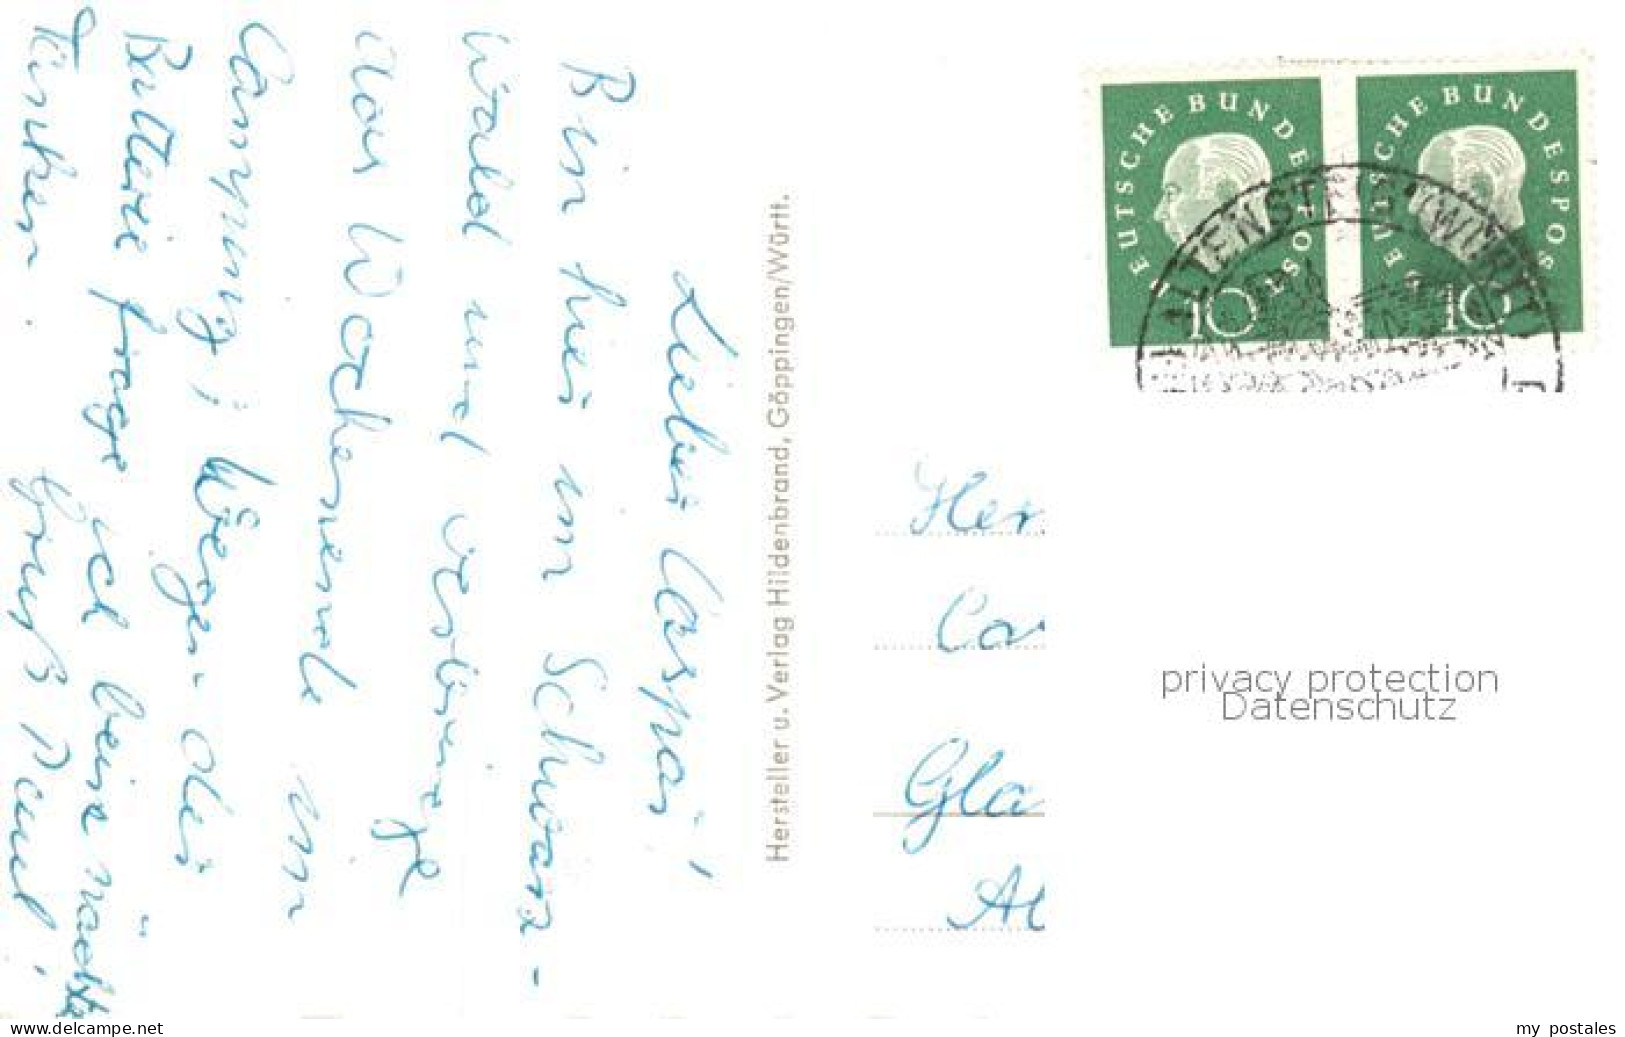 Lieber Caspar,
Bin hier im Schwarz-
wald und verbringe
das Wochenende im
Camping; Wegen der
Batterie frage ich beim nächsten
Tanken. Gruß Paul!
Hersteller u. Verlag Hildenbrand, Göppingen/Württ.
DEUTSCHE BUNDESPOST
10
DEUTSCHE BUNDESPOST
10
ALTENSTEIG (WÜRTT)
Her
Ca
Gla
privacy protection
Datenschutz
www.delcampe.net
my postales